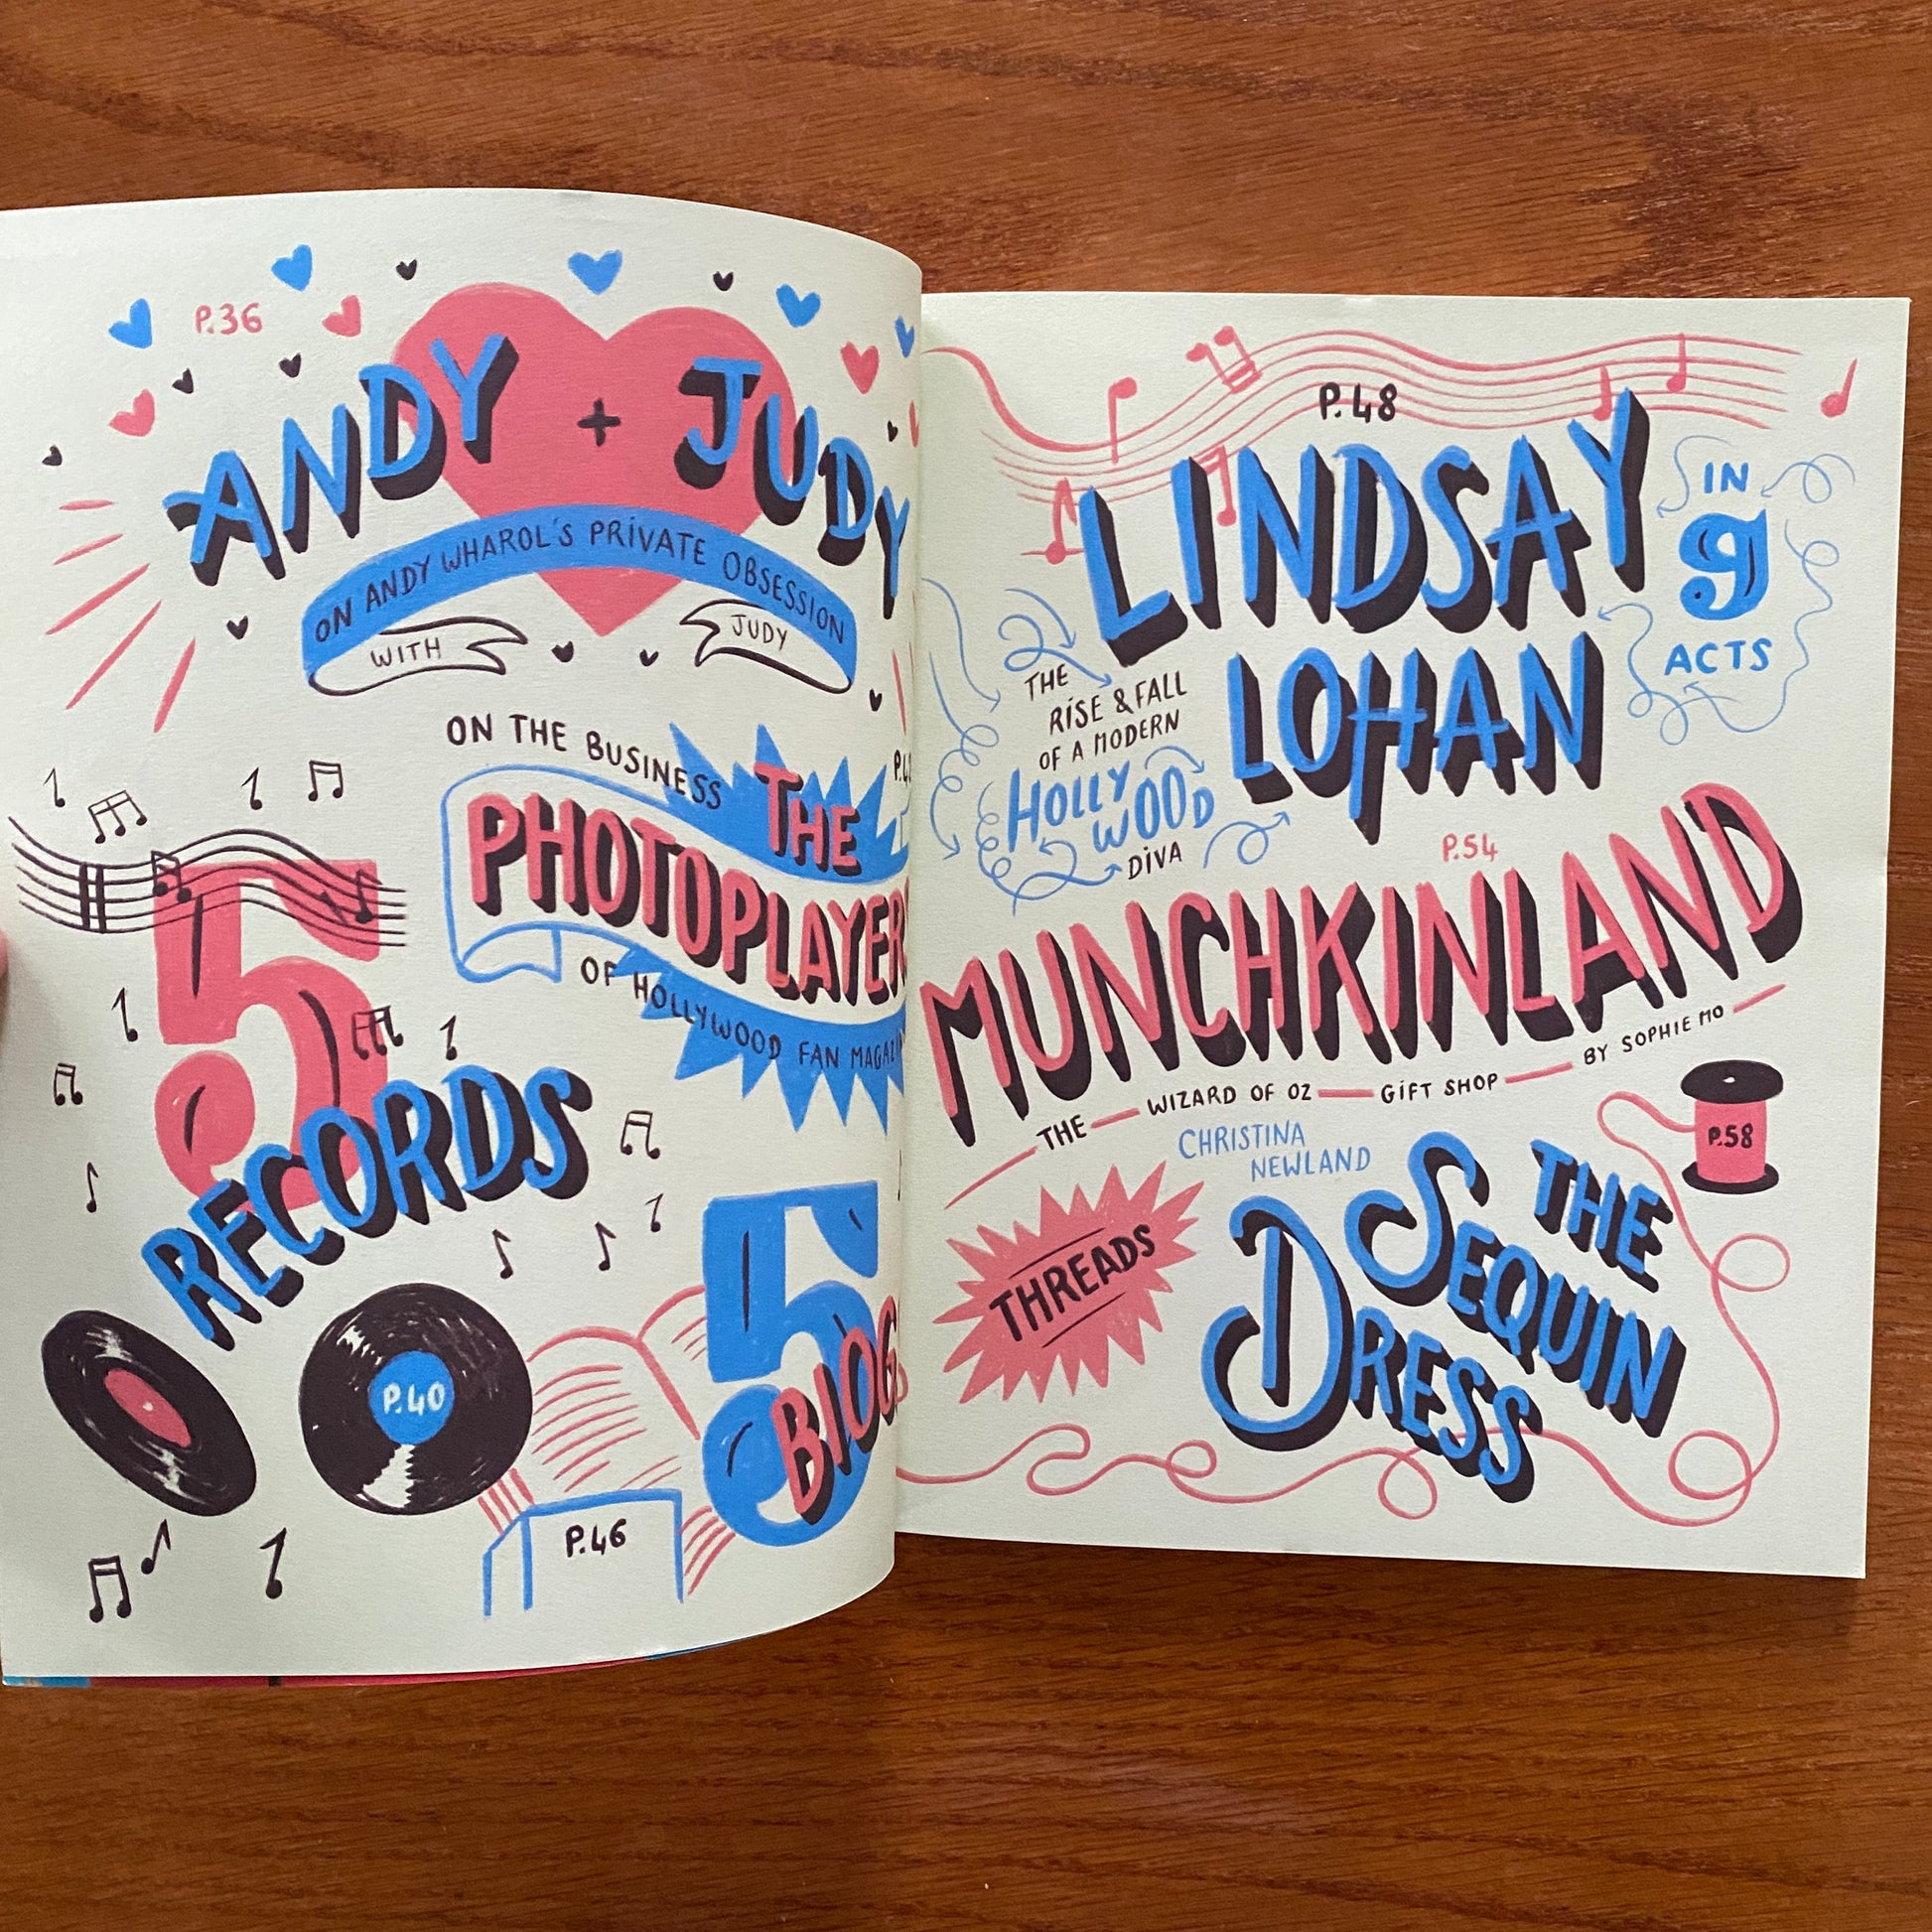 P.36
ANDY + JUDY
ON ANDY WHAROL'S PRIVATE OBSESSION
WITH JUDY
ON THE BUSINESS
THE
PHOTOPLAYER
OF HOLLYWOOD FAN
5
RECORDS
P.40
5
BIOGS
P.46
P.48
LINDSAY
LOHAN
IN
9
ACTS
THE
RISE & FALL
OF A MODERN
HOLLY
WOOD
DIVA
P.54
MUNCHKINLAND
THE WIZARD OF OZ GIFT SHOP BY SOPHIE MO
CHRISTINA
NEWLAND
THREADS
P.58
THE
SEQUIN
DRESS